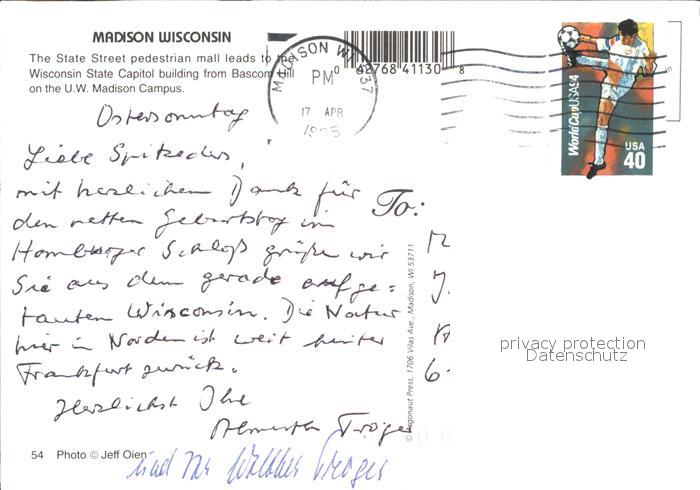 MADISON WISCONSIN
The State Street pedestrian mall leads to the
Wisconsin State Capitol building from Bascom Hill
on the U.W. Madison Campus.
MADISON WI 537
PM
17 APR
1995
0 42768 41130 8
World Cup USA 94
USA
40
Ostersonntag
Liebe Spitzeders,
mit herzlichem Dank für
den netten Geburtstag im
Homburger Schloß grüße wir
Sie aus dem gerade aufge=
tauten Wisconsin. Die Natur
hier in Norden ist weit hinter
Frankfurt zurück.
Herzlichst Ihre
Almuth Tröger
und Ihr Walther Tröger
To:
© Argonaut Press, 1706 Vilas Ave., Madison, WI 53711
privacy protection
Datenschutz
54 Photo © Jeff Oien